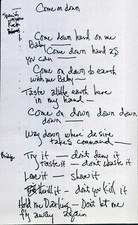 Come on down
Come down hard on me
Baby
Come down hard as
you can —
Come on down to earth
with me Baby
stable earth here
in my hand —
Come on down down down
down
Way down where desire
takes command —
Try it — don't deny it
Taste it — don't waste it
Love it — shove it
thrill it — don't you kill it
Hold me Darling — Don't let me
fly away again